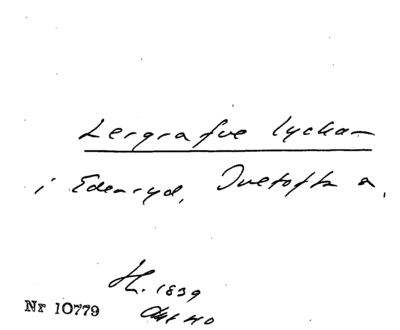 Lergrafve lyckan
i Edenryd, Ivetofta s,
H. 1839
Akt 40
Nr 10779